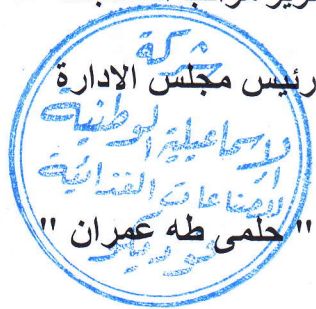 رئيس مجلس الادارة
شركة
الإسماعيلية الوطنية
للصناعات الغذائية
فوديكو
" حلمى طه عمران "